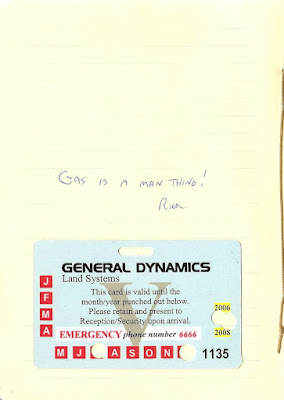 GAS IS A MAN THING!
GENERAL DYNAMICS
Land Systems
V
This card is valid until the
month/year punched out below.
Please retain and present to
Reception/Security upon arrival.
J
F
M
A
2006
2008
EMERGENCY phone number 6666
M J A S O N 1135